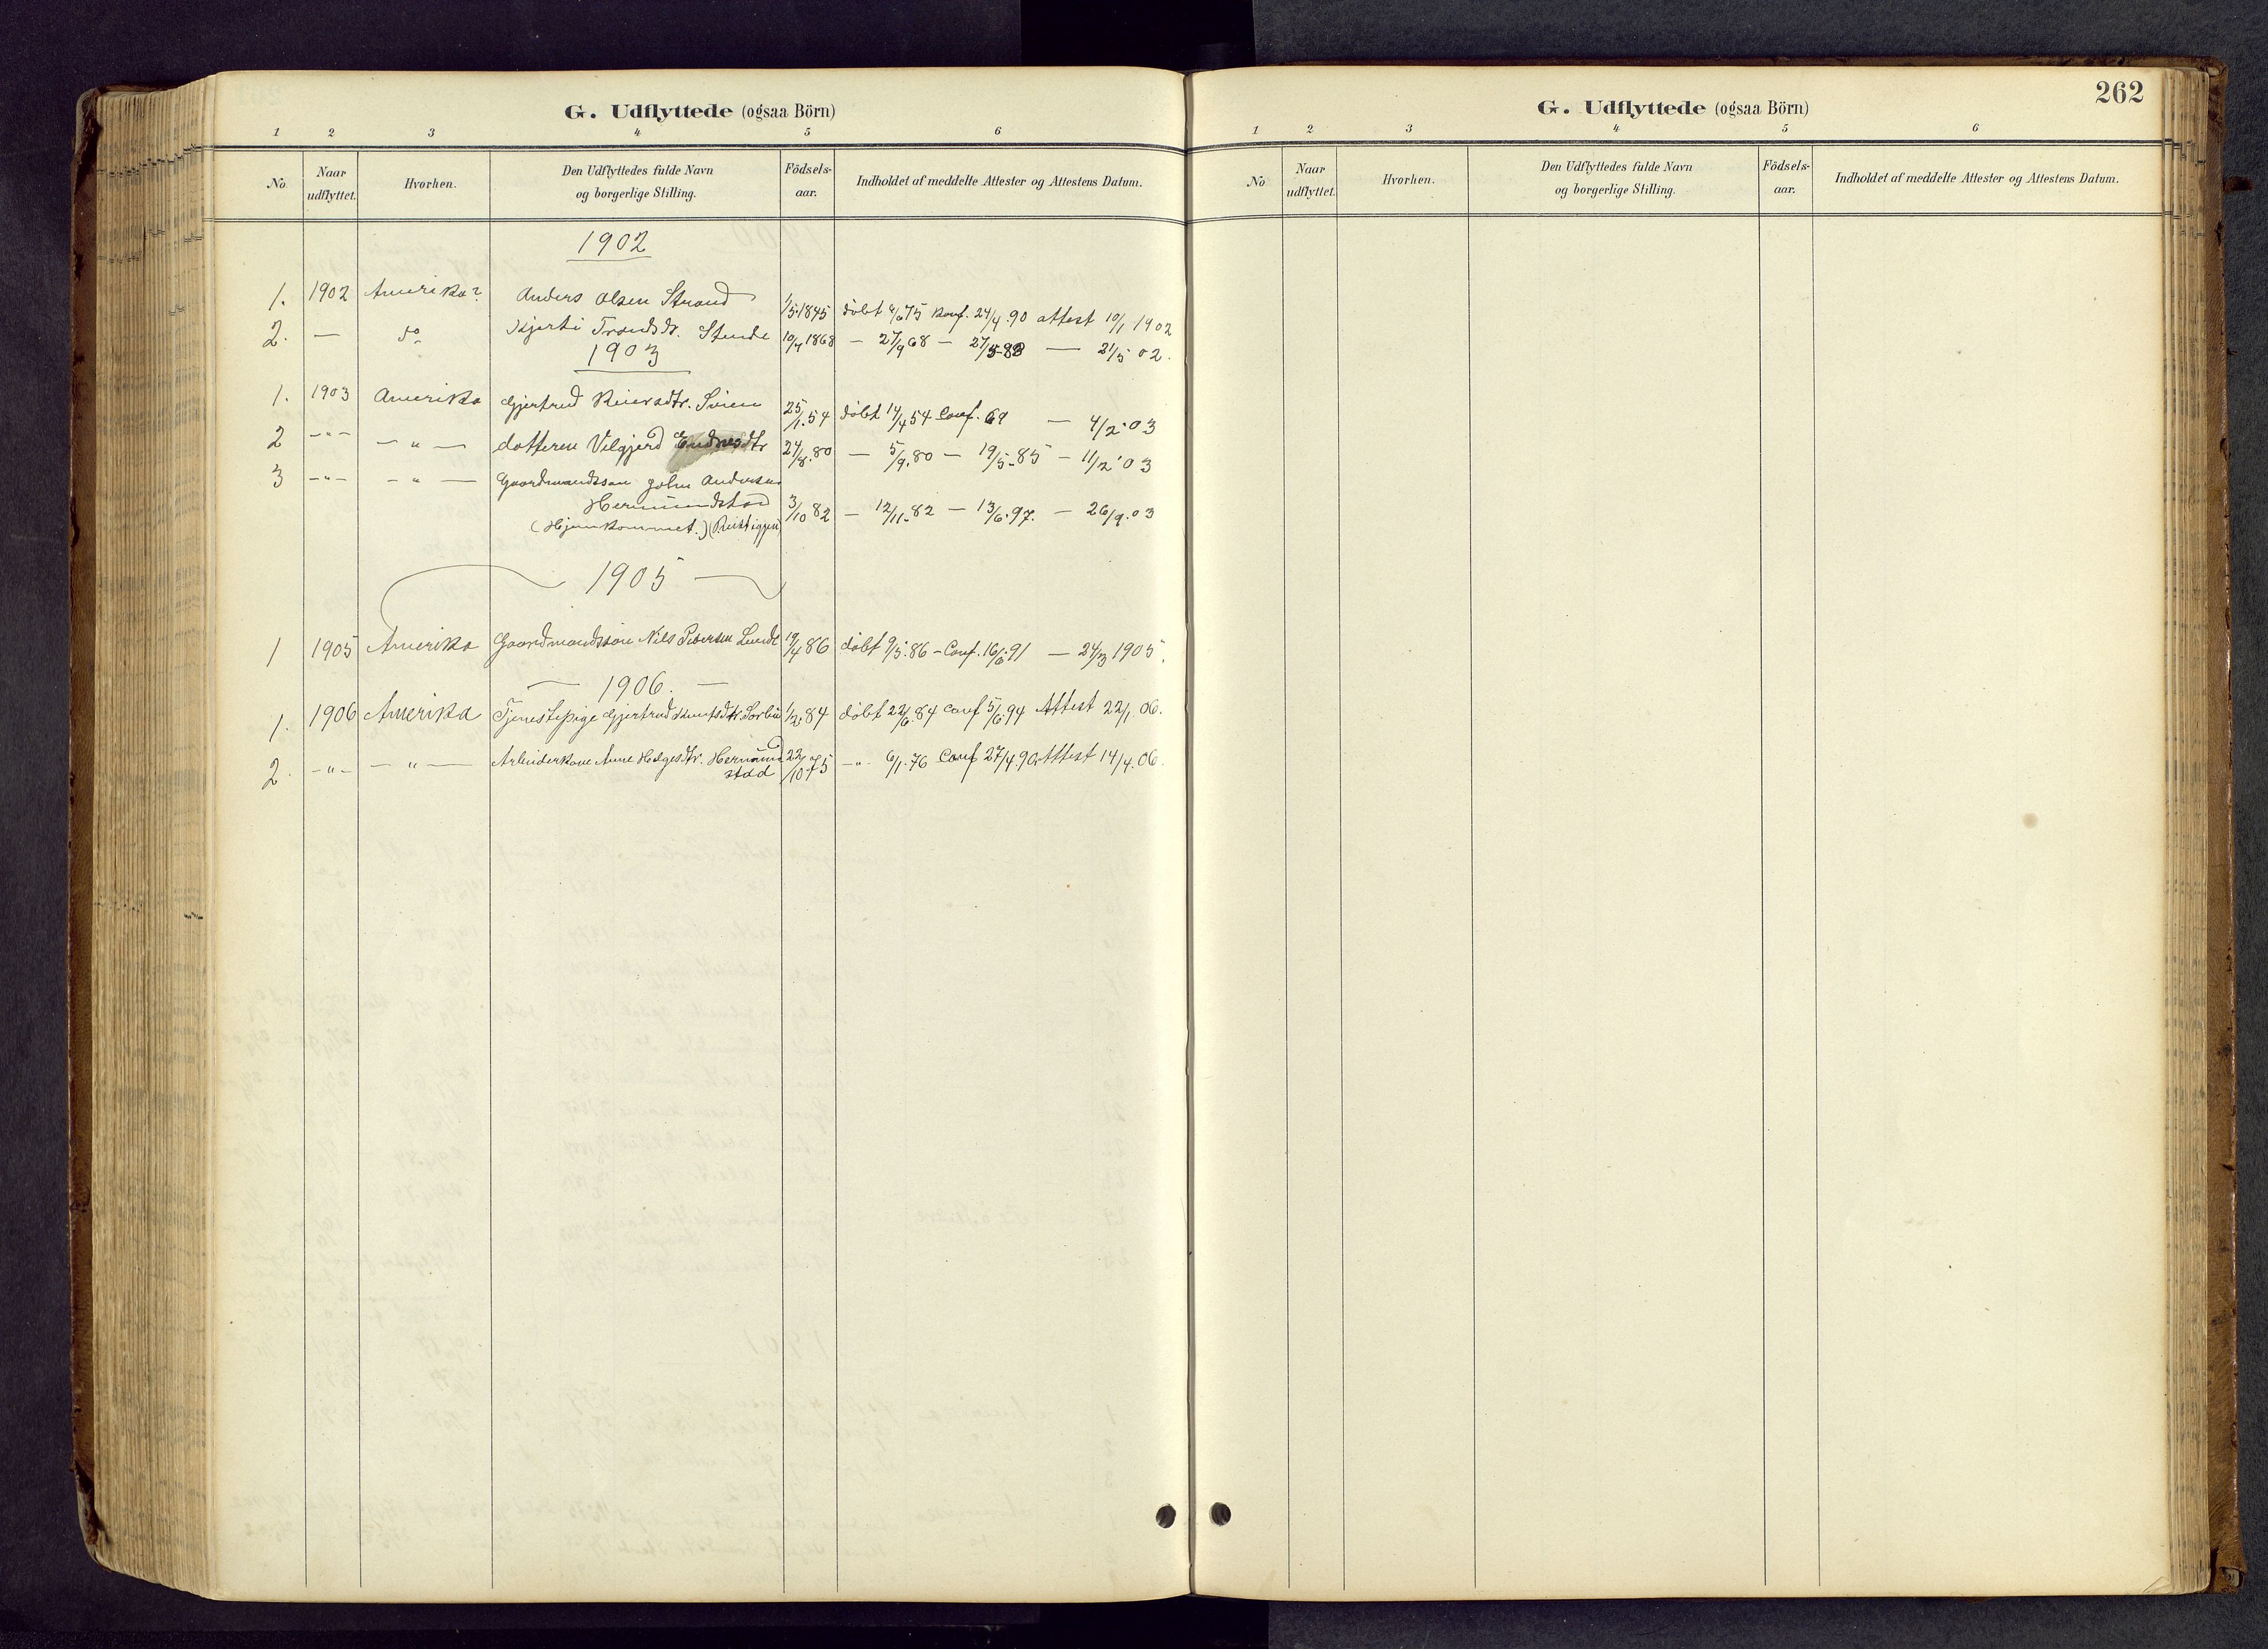 G. Udflyttede (ogsaa Börn)
1 2 3 4 5 6
No Naar udflyttet. Hvorhen. Den Udflyttedes fulde Navn og borgerlige Stilling. Födsels-aar. Indholdet af meddelte Attester og Attestens Datum.
1902
1. 1902 Amerika? Anders Olsen Strand 1/5 1845 döbt 75 Konf. 24/4 90 attest 10/1 1902
2. — do Kjersti Trondsdr. Stende 10/7 1868 — 27/9 68 — 27/5 83 — 21/5 02.
1903
1. 1903 Amerika Gjertrud Reiersdtr. Svien 25/1.54 döbt 17/4 54 Conf. 69 — 4/2.03
2 -"- — " — datteren Vilgjerd Endresdtr 24/8.80 — 5/9.80 — 19/5.85 — 11/2'03
3 -"- - " — Gaardmandssøn John Andersen
Hermundstad 3/10 82 — 12/11.82 — 13/6.97. — 26/9.03
(Hjemkommet.) (Reist igjen)
1905
1 1905 Amerika Gaardmandssøn Nils Pedersen Lunde 19/4 86 döbt 9/5.86 – Conf. 16/6.91 — 24/3 1905.
— 1906. —
1. 1906 Amerika Tjenestepige Gjertrud Knutsdtr. Sorbøe 1/2.84 döbt 22/6.84 Conf 5/6.94 Attest 22/1 06.
2. -"- — " — Arbeiderkone Anne Helgesdtr. Hermund
stad 22/10 75 -"- 6/1.76 Conf 27/4.90 Attest 14/4.06.
262
G. Udflyttede (ogsaa Börn)
1 2 3 4 5 6
No Naar udflyttet. Hvorhen. Den Udflyttedes fulde Navn og borgerlige Stilling. Födsels-aar. Indholdet af meddelte Attester og Attestens Datum.